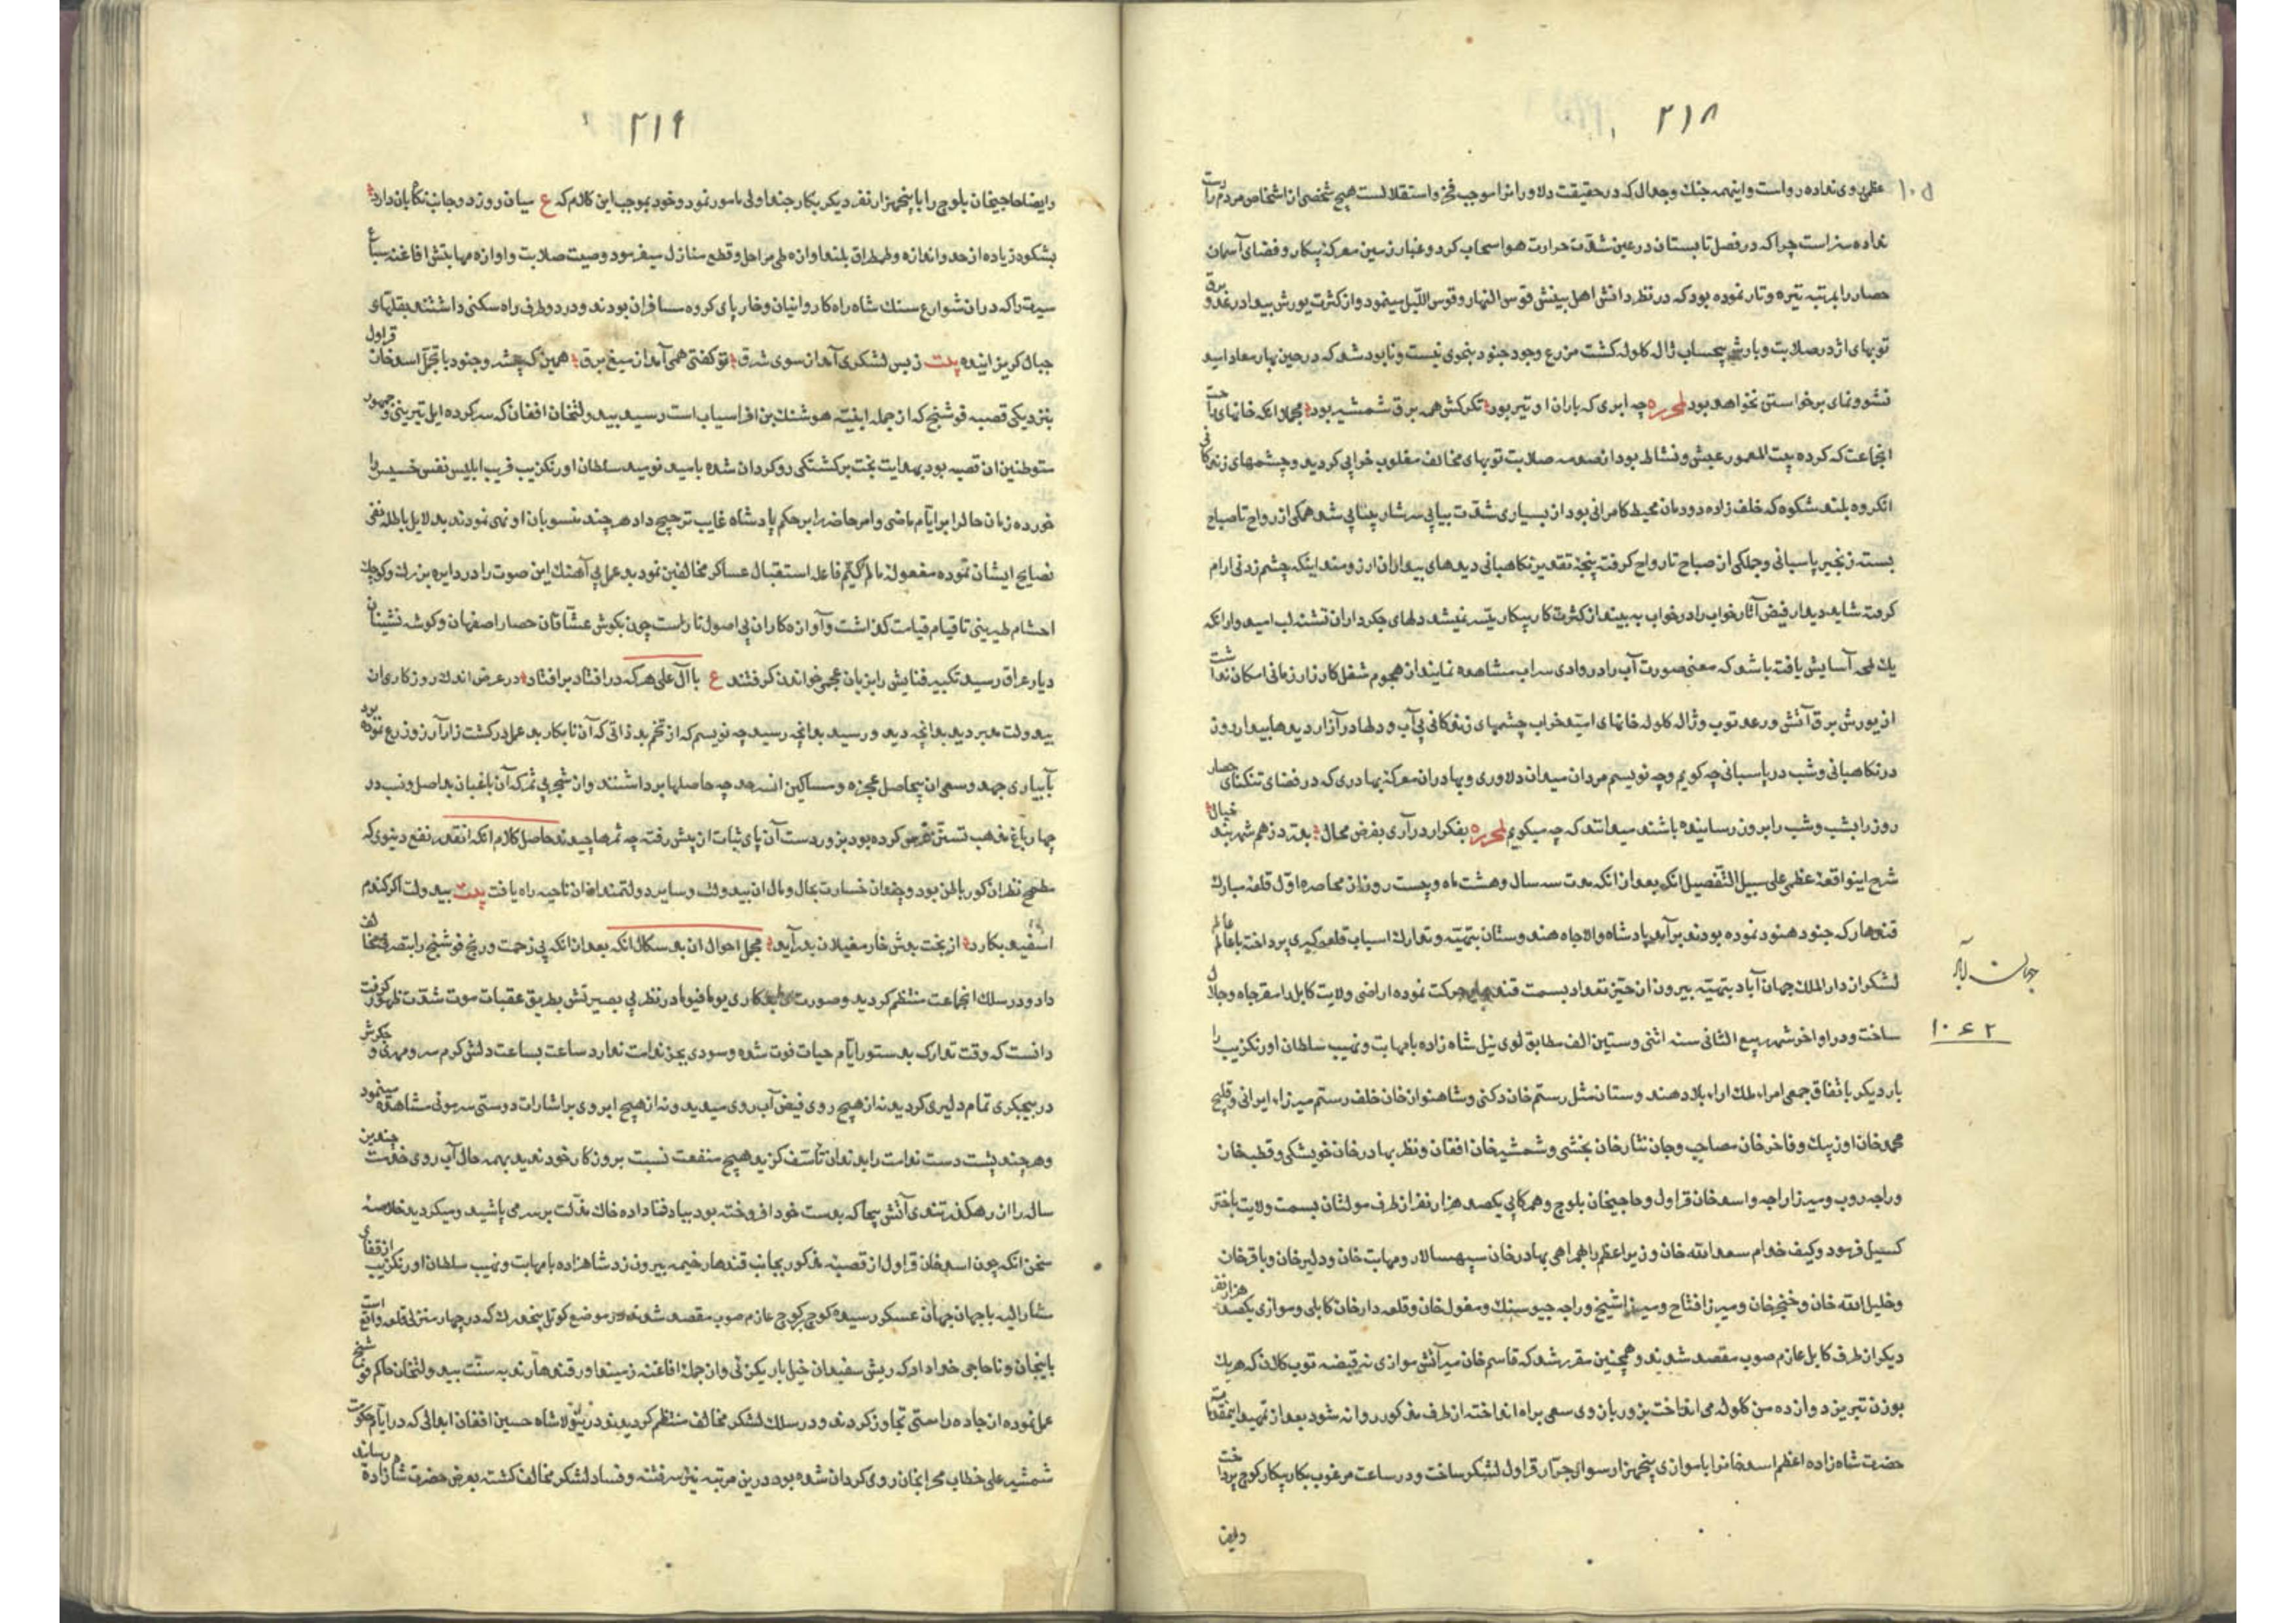 ۲۱۸
عظمی روی نداده رواست و اینهمه جنك و جدال که در حقیقت دلاورانرا موجب فخر و استقلالست هیچ شخصی از اشخاص مردم را
نداده سزاست چرا که در فصل تابستان در عین شدت حرارت هوا سحاب کرد و غبار زمین معرکهٔ پیکار و فضای آسمان
حصار را بمرتبه تیره و تار نموده بود که در نظر دانش اهل بینش قوس النهار و قوس اللیل مینمود و از کثرت یورش بیعد رعد و برق
توبهای اژدر صلابت و بارش بیحساب ژاله کلوله کشت مزرع وجود جنود بنحوی نیست و نابود شد که در حین بهار معاد امید
نشو و نمای برخواستن نخواهد بود لمحرره چه ابری که باران او تیر بود تکرکش همه برق شمشیر بود مجملا انکه خانهای
انجماعت که کرده بیت المعمور عیش و نشاط بود از صدمه صلابت توبهای مخالف مغلوب خرابی کردید و چشمهای
انکروه بلند شکوه که خلف زاده دودمان محیط کامرانی بود از بسیاری شدت بیابی سرشار شد همکی از رواح تا صباح
بسته زنجیر پاسبانی و جملکی از صباح تا رواح کرفته پنجهٔ تقدیر نکاهبانی دیدهای بیداران ارزومند اینکه چشم زدنی ارام
کرفته شاید دیدار فیض آثار خواب را در خواب به بیند از کثرت کار پیکار میسر نمیشد دلهای جکرداران تشنه لب امیدوار انکه
یك لمحه آسایش یافته باشد که معنی صورت آب را در وادی سراب مشاهده نمایند از هجوم شغل کارزار زمانی امکان نداشت
از یورش برق آتش و رعد توب و ژاله کلوله خانهای امید خراب چشمهای زندکانی بی آب و دلها در آزار دیدها بیدار روز
در نکاهبانی و شب در پاسبانی چه کویم و چه نویسم مردان میدان دلاوری و بهادران معرکهٔ بهادری که در فضای تنکنای حصار
روز را بشب و شب را بروز رسانیده باشند میدانند که چه میکویم لمحرره بفکر ار در آری بفرض محال بدرّد زهم شهربند خیال
شرح اینواقعهٔ عظمی علی سبیل التفصیل انکه بعد از انکه مدت سه سال و هشت ماه و بیست روز از محاصره اول قلعهٔ مبارك
قندهار که جنود هنود نموده بودند برآمد پادشاه والاجاه هندوستان بتهیته و تدارك اسباب قلعه کیری پرداخت با عالم عالم
لشکر از دار الملك جهان آباد بتهیته بیرون از حیز تعداد بسمت قندهار حرکت نموده اراضی ولایت کابل را مقر جاه و جلال
ساخت و در اواخر شهر ربیع الثانی سنه اثنی و ستین الف مطابق لوی ئیل شاه زاده با مهابت و نهیب سلطان اورنکزیب را
بار دیکر باتفاق جمعی امراء ملك اراء بلاد هندوستان مثل رستم خان دکنی و شاهنواز خان خلف رستم میرزاء ایرانی و قلیچ
محمد خان اوزبیك و فاخر خان مصاحب و جان نثار خان بخشی و شمشیر خان افغان و نظر بهادر خان خویشکی و قطب خان
و راجه روپ و میرزا راجه و اسد خان قراول و حاجیخان بلوچ و همکابی یکصد هزار نفر از طرف مولتان بسمت ولایت باختر
کسیل فرمود و کیف خدام سعد الله خان وزیر اعظم را همراهی بهادر خان سپهسالار و مهابت خان و دلیر خان و باقر خان
و خلیل الله خان و خنجر خان و میرزا فتاح و میرزا شیخ و راجه جیو سینك و مغول خان و قلعه دار خان کابلی و موازی یکصد هزار نفر
دیکر از طرف کابل عازم صوب مقصد شوند و همچنین مقرر شد که قاسم خان میر آتش موازی نه قبضه توب کلان که هر یك
بوزن تبریز دوازده من کلوله می انداخت بزور بازوی سعی براه انداخته از طرف مذکور روانه شود بعد از تمهید اینمقدمات
حضرت شاه زاده اعظم اسد خانرا با موازی پنجهزار سوار جرّار قراول لشکر ساخت و در ساعت مرغوب بکار پیکار کوچ پرداخت
و ایضا
جهان آباد
۱۰۶۲
۲۱۹
و ایضا حاجیخان بلوچ را با پنجهزار نفر دیکر بکار جنداولی مامور نمود و خود بموجب این کلام که ع میان رو زدو جانب نکاهبان دارد
بشکوه زیاده از حد و اندازه و طمطراق بلند اوازه طی مراحل و قطع منازل میفرمود و صیت صلابت و اوازه مهابتش افاغنه سباع
سیرت را که در ان شوارع سنك شاه راه کاروانیان و خار پای کروه مسافران بودند و در دو طرف راه سکنی داشتند بقلهای
جبال کریزانیده بیت ز بس لشکری آمد از سوی شرق تو کفتی همی آمد از میغ برق همین که چشم و جنود با تجمل اسد خان قراول
بنزدیکی قصبه فوشنج که از جمله ابنیهٔ هوشنك بن افراسیاب است رسید بیدولتخان افغان که سرکرده ایل تیرینی و جمهور
متوطنین ان قصبه بود بهدایت بخت برکشتکی روکردان شده بامید نوید سلطان اورنکزیب فریب ابلیس نفس خسیس را
خورده زمان حال را بر ایام ماضی و امر حاضر را بر حکم پادشاه غایب ترجیح داد هر چند منسوبان او نمی نمودند بدلایل باطله نفی
نصایح ایشان نموده مفعول فاعل استقبال عساکر مخالفین نمود بدعملی آهنك این صوت را در دایره بزرك و کوچك
احشام طیرینی تا قیام قیامت کذاشت و آوازه کار ان بی اصول ناراست چون بکوش عشّاقان حصار اصفهان و کوشه نشینان
دیار عراق رسید تکبیر فنایش را بزبان عجمی خواندن کرفتند ع با آل علی هر که در افتاد بر افتاد در عرض اندك روزکاری ان
بیدولت دید بدانچه دید و رسید بدانچه رسید چه نویسم که از تخم بدذاتی که آن نابکار بدعمل در کشت زار آرزو زرع نموده بود
بآبیاری جهد و سعی ان بیحاصل عجزه و مساکین انسرحد چه حاصلها برداشتند و ان شجر بی ثمر که آن باغبان بداصل و نسب در
چهار باغ مذهب تسنن غرس کرده بود بزور دست آن پای ثبات از پیش رفته چه ثمرها چیدند حاصل کلام انکه انقدر نفع دنیوی که
مطمح نظر ان کور باطن بود و چندان خسارت بحال و مال ان بیدولت و سایر دولتمندان ان ناحیه راه یافت بیت بیدولت اکر کندم
اسفید بکارد از بخت بدش خار مغیلان بدر آید مجمل احوال ان بدسکال انکه بعد از انکه بی زحمت و رنج فوشنج را بتصرف مخالف
داد و در سلك انجماعت منتظم کردید و صورت یوما فیوما در نظر بی بصیرتش بطریق عقبات موت شدت ظهور کرفت
دانست که وقت تدارك بدستور ایام حیات فوت شده و سودی بجز ندامت ندارد ساعت بساعت دلش کرم سرد مهری و جکرش
در بیجکری تمام دلیری کردید نه از هیچ روی فیض آب روی میدید و نه از هیچ ابروی بر اشارات دوستی سر موئی مشاهده مینمود
و هر چند پشت دست ندامت را بدندان تأسف کزید هیچ منفعت نسبت بروزکار خود ندید بهمه حال آب روی خدمت چندین
سال را از رهکذر تندی آتش بیجا که بدست خود افروخته بود بباد فنا داده خاك مذلّت بر سر می پاشید و میکردید خلاصه
سخن انکه چون اسد خان قراول از قصبه مذکور بجانب قندهار خیمه بیرون زد شاهزاده با مهابت و نهیب سلطان اورنکزیب از قفای
مشار الیه با جهان جهان عسکر رسیده کوچ بر کوچ عازم صوب مقصد شوند در موضع کوتل پنجدرك که در چهار منزلی قلعه واقع است
باینجان و ناحاجی خداداد که ریش سفیدان خیل باریکزئی و از جملهٔ افاغنه زمینداور قندهارند به سنّت بیدولتخان حاکم فوشنج
عمل نموده از جاده راستی تجاوز کردند و در سلك لشکر مخالف منتظم کردیدند و شاه حسین افغان ابدالی که در ایام حکومت
شمشیر علی خطاب محرابخان روی کردان شده بود درین مرتبه نیز سر فتنه و فساد لشکر مخالف کشته بعرض حضرت شاهزاده رساند